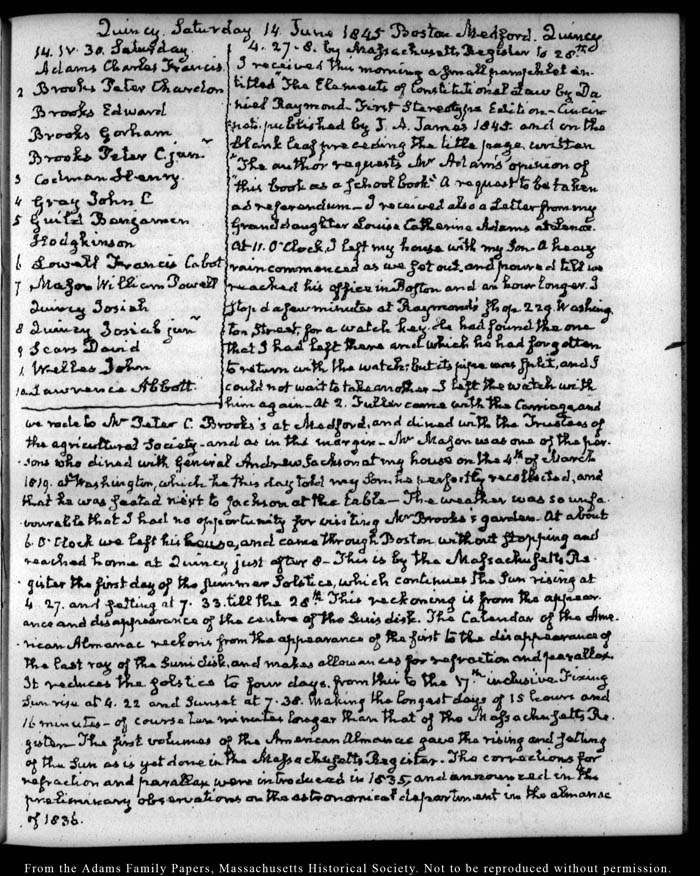 Quincy. Saturday 14. June 1845 Boston Medford. Quincy
14. IV. 30. Saturday
Adams Charles Francis
2 Brooks Peter Chardon
Brooks Edward
Brooks Gorham
Brooks Peter C. junr
3 Codman Henry
4 Gray John C
5 Guild Benjamen
Hodgkinson
6 Lowell Francis Cabot
7 Mason William Powell
Quincy Josiah
8 Quincy Josiah junr
9 Sears David
Welles John
10 Lawrence Abbott.
4. 27-8. by Massachusetts Register to 28th
I received this morning a small pamphlet en-
titled "The Elements of Constitutional Law by Da
niel Raymond- First Stereotype Edition- Cincin
nati. published by J. A. James 1845. and on the
blank leaf preceding the title page, written
"The author requests Mr Adams's opinion of
"this book as a school book" A request to be taken
ad referendum- I received also a Letter from my
Grand daughter Louisa Catherine Adams at Lenox.
At 11. O'Clock, I left my house with my Son. A heavy
rain commenced as we got out, and poured till we
reached his office in Boston and an hour longer. I
stop'd a few minutes at Raymond's shop 229. Washing
ton Street, for a watch key. He had found the one
that I had left there and which he had forgotten
to return with the watch; but its pipe was split, and I
could not wait to take another- I left the watch with
him again- At 2. Fuller came with the Carriage, and
we rode to Mr Peter C. Brooks's at Medford, and dined with the Trustees of
the agricultural Society- and as in the margin- Mr Mason was one of the per-
sons who dined with General Andrew Jackson at my house on the 4th of March
1819. at Washington, which he this day told my Son he perfectly recollected, and
that he was seated next to Jackson at the table- The weather was so unfa-
vourable that I had no opportunity for visiting Mr Brooks's garden. At about
6. O'Clock we left his house, and came through Boston without stopping and
reached home at Quincy just after 8- This is by the Massachusetts Re-
gister the first day of the summer Solstice, which continues the Sun rising at
4. 27. and setting at 7. 33. till the 28th This reckoning is from the appear-
ance and disappearance of the centre of the Sun's disk. The Calendar of the Ame-
rican Almanac reckons from the appearance of the first to the disappearance of
the last ray of the Sun's disk, and makes allowances for refraction and parallax.
It reduces the solstice to four days. from this to the 17th inclusive. Fixing
Sun rise at 4. 22 and Sunset at 7. 38. Making the longest days of 15 hours and
16 minutes- of course ten minutes longer than that of the Massachusetts Re-
gister- The first volumes of the American Almanac gave the rising and setting
of the Sun as is yet done in the Massachusetts Register. The corrections for
refraction and parallax were introduced in 1835. and announced in the
preliminary observations on the astronomical department in the almanac
of 1836.
From the Adams Family Papers, Massachusetts Historical Society. Not to be reproduced without permission.